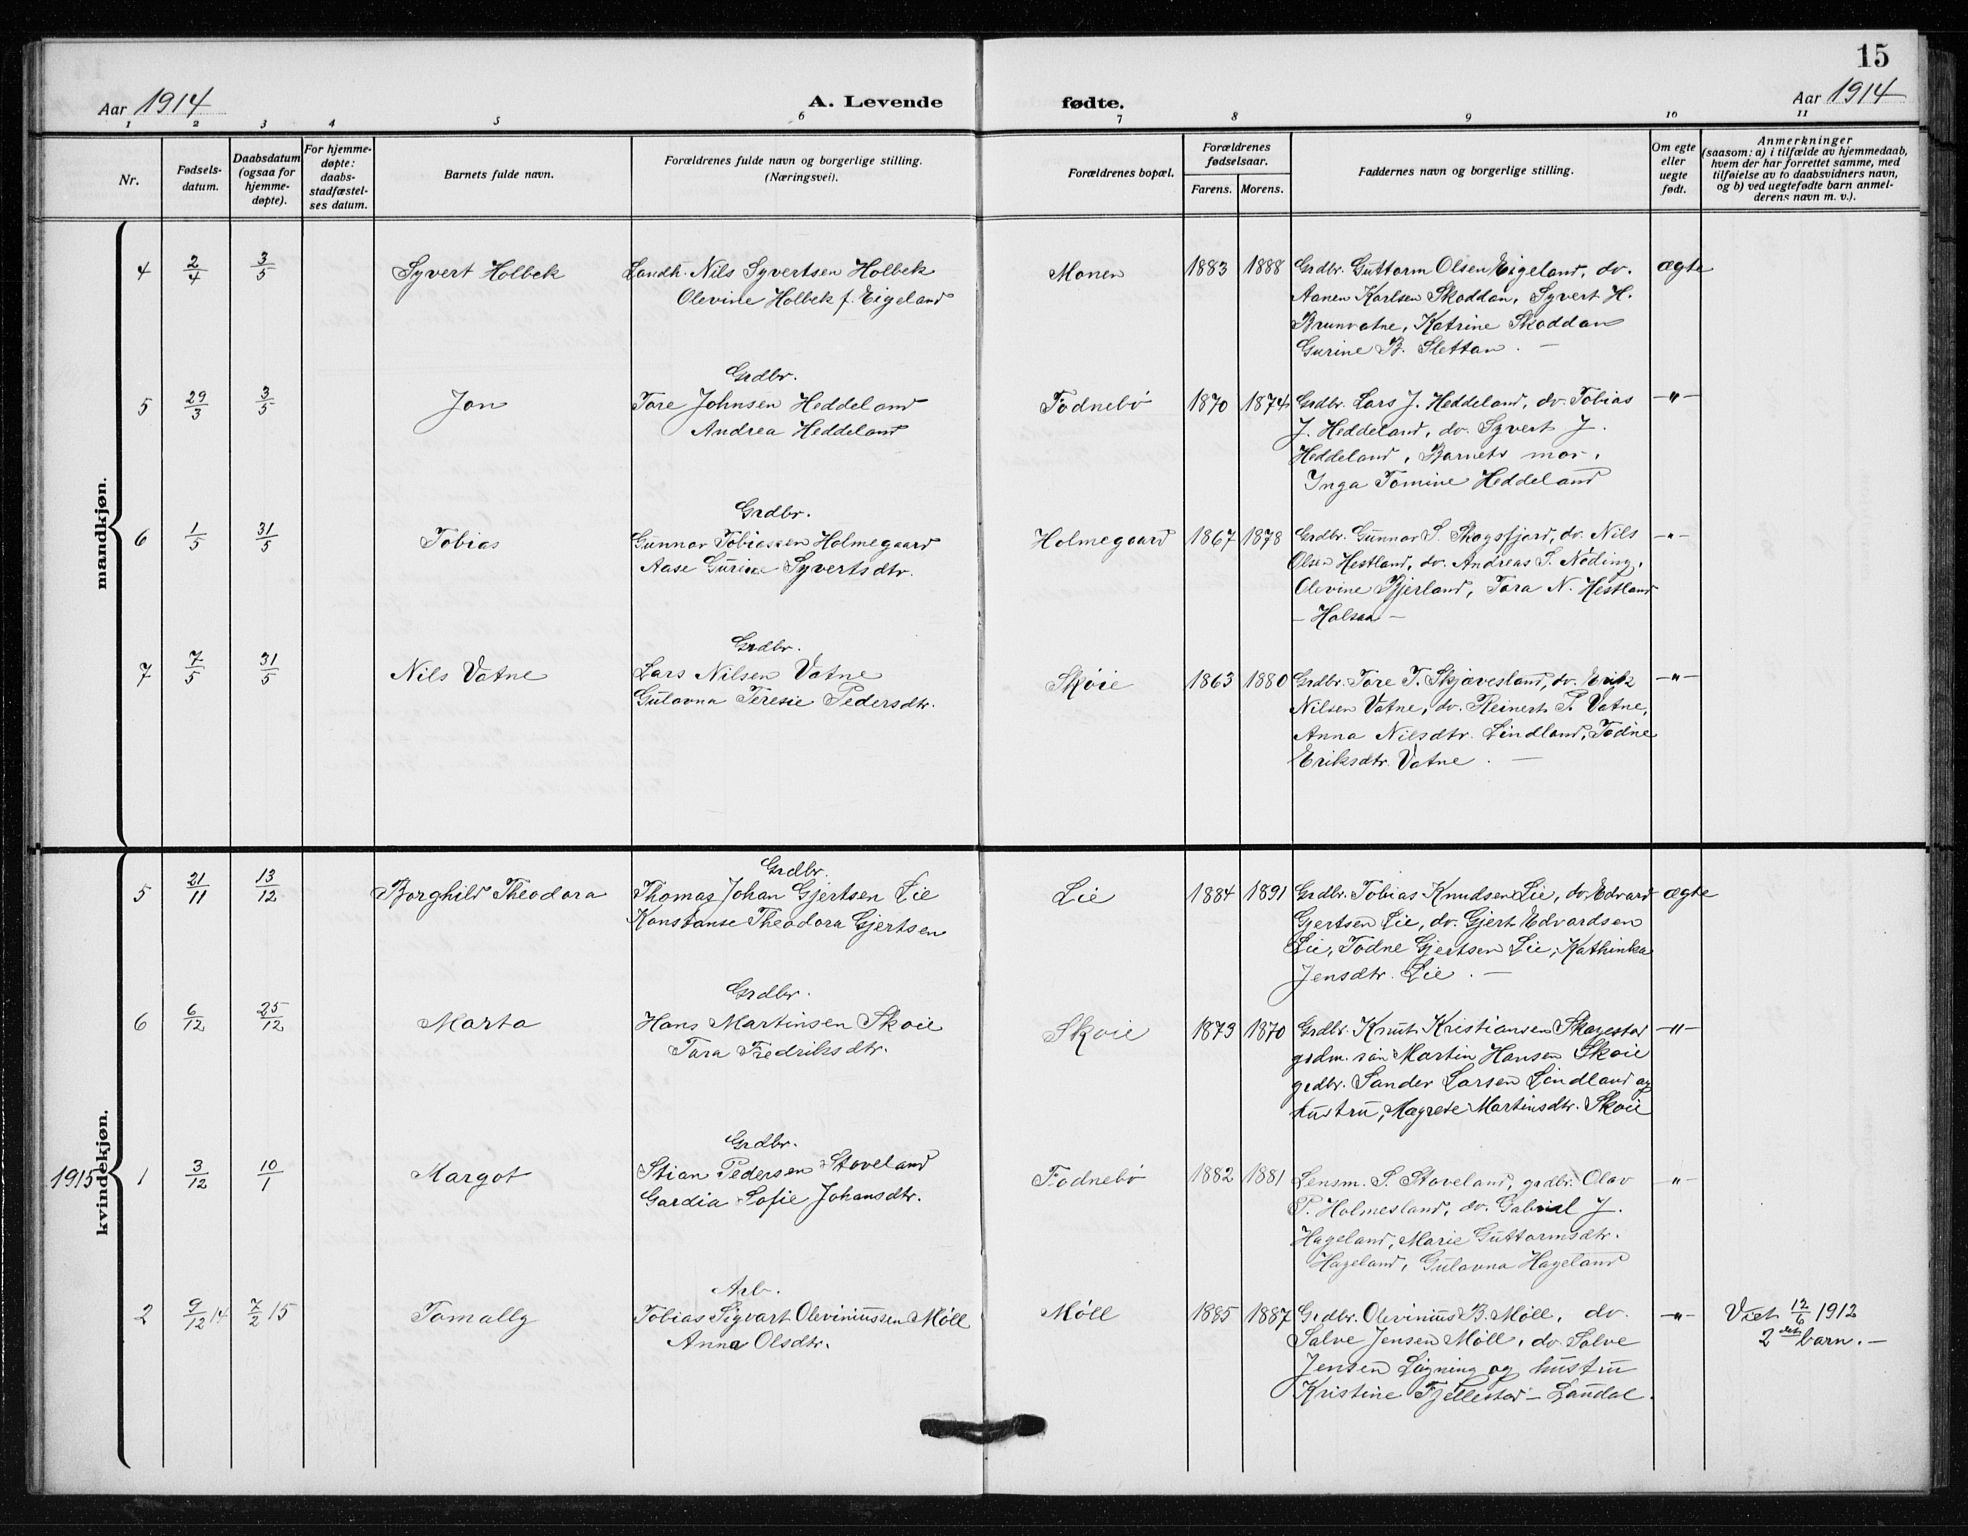 15
Aar 1914
A. Levende fødte.
Aar 1914
1 2 3 4 5 6 7 8 9 10 11
Nr.
Fødsels-
datum.
Daabsdatum
(ogsaa for
hjemme-
døpte).
For hjemme-
døpte:
daabs-
stadfæstel-
ses datum.
Barnets fulde navn.
Forældrenes fulde navn og borgerlige stilling.
(Næringsvei).
Forældrenes bopæl.
Forældrenes
fødselsaar.
Farens. Morens.
Faddernes navn og borgerlige stilling.
Om egte
eller
uegte
født.
Anmerkninger
(saasom: a) i tilfælde av hjemmedaab,
hvem der har forrettet samme, med
tilføielse av to daabsvidners navn,
og b) ved uegtefødte barn anmel-
derens navn m. v.).
mandkjøn.
4 2/4 3/5 Syvert Holbek
Landh. Nils Syvertsen Holbek
Olevine Holbek f. Eigeland
Monen 1883 1888
Grdbr. Guttorm Olsen Eigeland, do.
Aanen Karlsen Skoddan, Syvert H.
Brunvatne, Katrine Skoddan
Gurine B. Slettan. —
ægte
5 29/3 3/5 Jon
Grdbr.
Tore Johnsen Heddeland
Andrea Heddeland
Fodnebø 1870 1874
Grdbr. Lars J. Heddeland, do. Tobias
J. Heddeland, do. Syvert J.
Heddeland, Barnets mor,
Inga Tomine Heddeland
—"—
6 1/5 31/5 Tobias
Grdbr.
Gunnar Tobiassen Holmegaard
Aase Gurine Syvertsdtr.
Holmegaard 1867 1878
Grdbr. Gunnar S. Skogsfjord, do. Nils
Olsen Hestland, do. Andreas S. Nöding,
Olevine Bjerland, Tara N. Hestland
— Holsaa —
—"—
7 7/5 31/5 Nils Vatne
Grdbr.
Lars Nilsen Vatne
Gulovna Teresie Pedersdtr.
Skøie 1863 1880
Grdbr. Tore T. Skjævesland, do. Erik
Nilsen Vatne, do. Reinert P. Vatne,
Anna Nilsdtr. Lindland, Todne
Eriksdtr. Vatne. —
—"—
kvindekjøn.
5 21/11 13/12 Borghild Theodora
Grdbr.
Thomas Johan Gjertsen Lie
Konstanse Theodora Gjertsen
Lie 1884 1891
Grdbr. Tobias Knudsen Lie, do. Edvard
Gjertsen Lie, do. Gjert Edvardsen
Lie, Todne Gjertsen Lie, Kathinka
Jensdtr. Lie. —
ægte
6 6/12 25/12 Marta
Grdbr.
Hans Martinsen Skoie
Tara Fredriksdtr.
Skoie 1873 1870
Grdbr. Knut Kristiansen Skagestad
grdm. søn Martin Hansen Skoie
grdbr. Sander Larsen Lindland og
hustru, Magrete Martinsdtr. Skoie
—"—
1915 1 3/12 10/1 Margot
Grdbr.
Stian Pedersen Stoveland
Gardia Sofie Johansdtr.
Fodnebø 1882 1881
Lensm. S. Stoveland, grdbr. Olav
P. Holmesland, do. Gabriel J.
Hageland, Marie Guttormsdtr.
Hageland, Gulovna Hageland
—"—
2 9/12 14 7/2 15 Tomally
Arb.
Tobias Sigvart Oleviniussen Möll
Anna Olsdtr.
Möll 1885 1887
Grdbr. Olevinius B. Möll, do.
Salve Jensen Möll, do. Salve
Jensen Lögning og hustru
Kristine Fjellestad — Laudal.
—"—
Viet 12/6 1912
2det barn. —